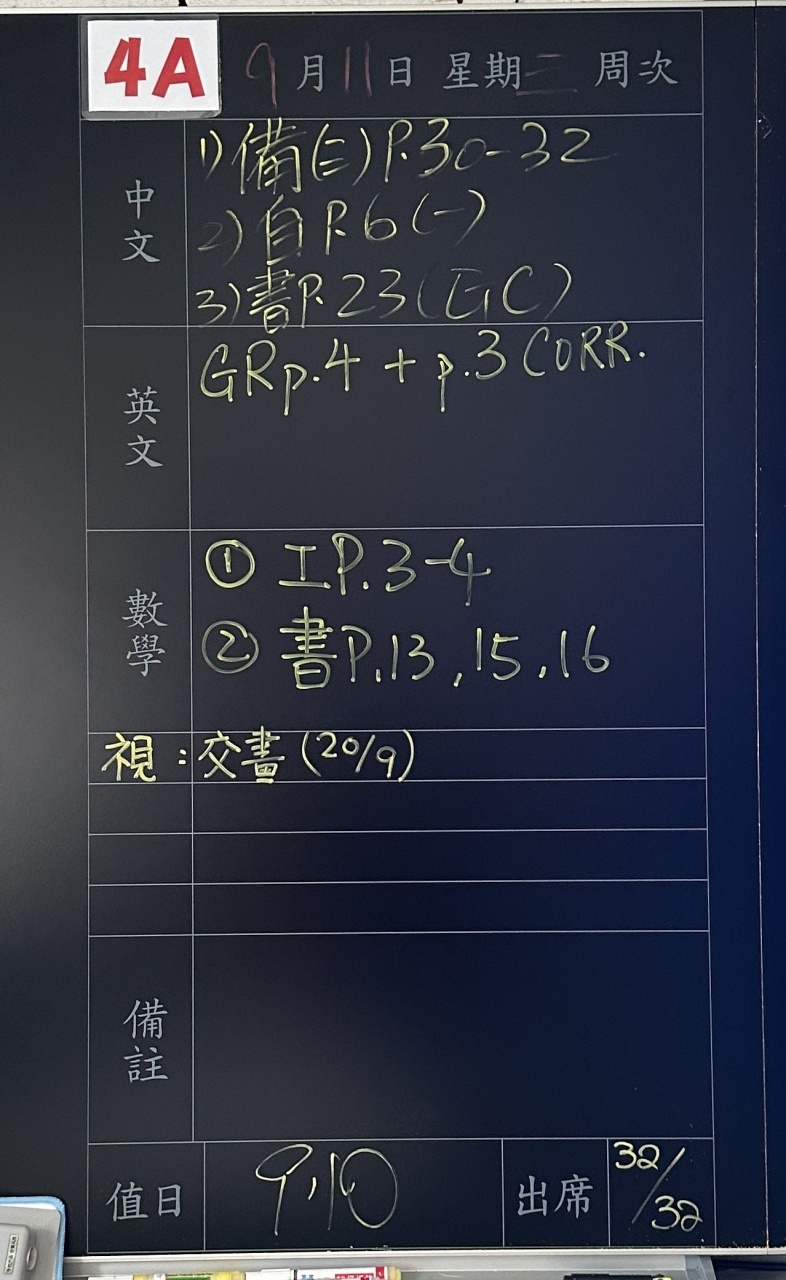 4A 9月11日 星期三 周次
中文
1) 備(三)P.30-32
2) 自P.6(一)
3) 書P.23(GC)
英文
GR p.4 + p.3 CORR.
數學
① 工P.3-4
② 書P.13,15,16
視：交畫(20/9)
備註
值日 9,10 出席 32/32